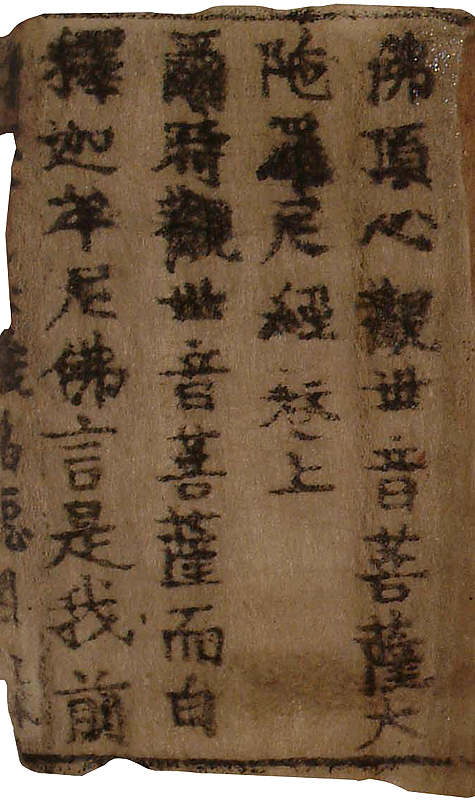 佛頂心觀世音菩薩大
陁羅尼經卷上
爾時觀世音菩薩而白
釋迦牟尼佛言是我前